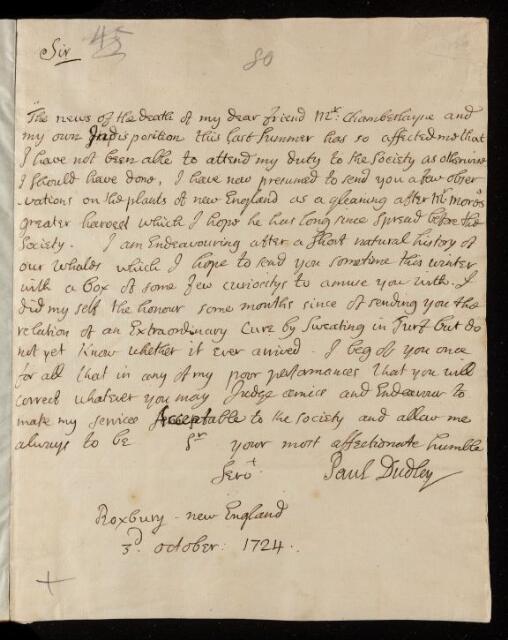 Sir
45
80
The news of the death of my dear friend Mr: Chamberlayne and
my own Indisposition this last summer has so affected me that
I have not been able to attend my duty to the Society as otherwise
I should have done, I have now presumed to send you a few obser
-vations on the plants of new England as a gleaning after Mr More's
greater harvest which I hope he has long since spread before the
Society. I am Endeavouring after a short natural history of
our Whales which I hope to send you sometime this winter
with a box of some few curiositys to amuse you with. I
did my self the honour some months since of sending you the
relation of an Extraordinary Cure by Sweating in Turf but do
not yet know whether it ever arrived. I beg of you once
for all that in any of my poor performances that you will
correct whatever you may Judge amiss and Endeavour to
make my services Acceptable to the Society and allow me
always to be Sr your most affectionate humble
Servt. Paul Dudley
Roxbury - new England
3d october: 1724.